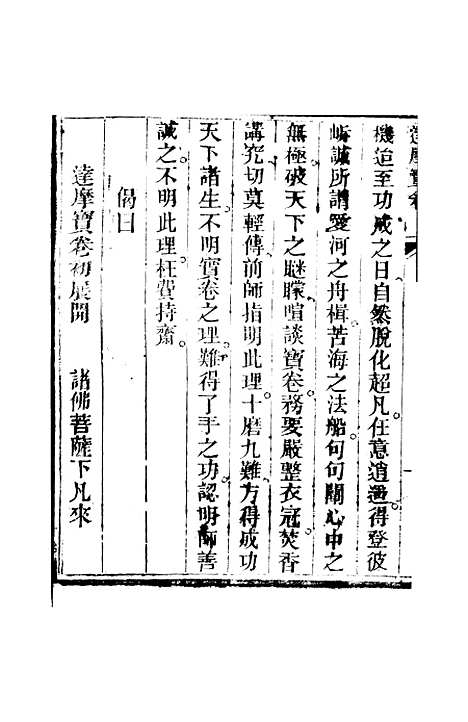 達摩寶卷
機造至功成之日自然脫化超凡任意逍遙得登彼
岸誠所謂愛河之舟楫苦海之法船句句關心中之
無極破天下之瞇矇喧談寶卷務要嚴整衣冠焚香
講究切莫輕傳前師指明此理十磨九難方得成功
天下諸生不明寶卷之理難得了手之功認明師善
誠之不明此理枉費持齋
偈曰
達摩寶卷初展開　諸佛菩薩下凡來